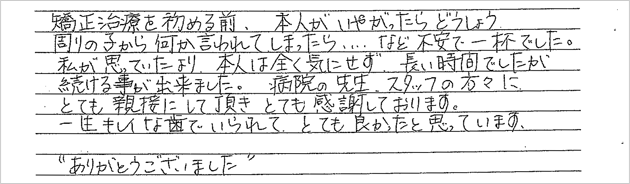 矯正治療を初める前、本人がいやがったらどうしよう
周りの子から何か言われてしまったら....など不安で一杯でした。
私が思っていたより、本人は全く気にせず、長い時間でしたが
続ける事が出来ました。病院の先生、スタッフの方々に
とても親接にして頂きとても感謝しております。
一生キレイな歯でいられて、とても良かったと思っています、
"ありがとうございました"